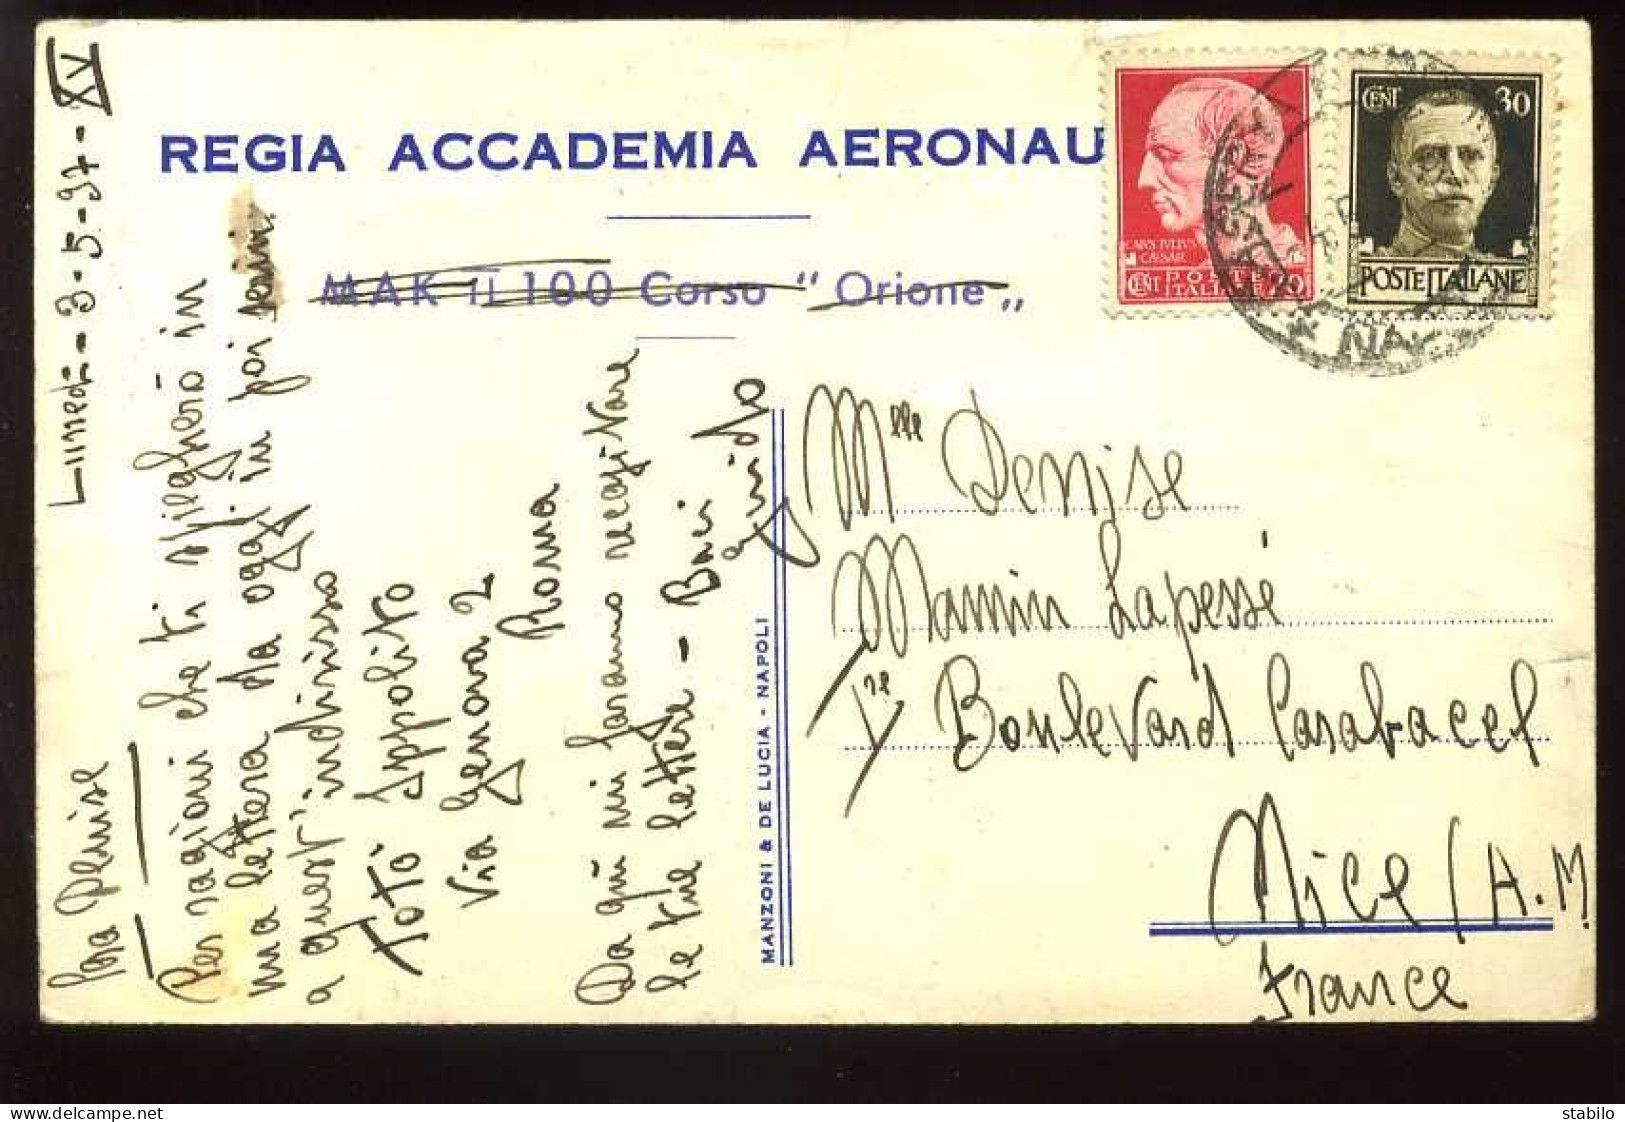 REGIA ACCADEMIA AERONAU
MAK II 100 Corso "Orione"
Lunedì - 3-5-37-XV
Cara Denise
Per ragioni che ti spiegherò in
una lettera da oggi in poi scrivi
a quest'indirizzo
Totò Ippolito
Via Genova 2
Roma
Da qui mi faranno recapitare
le tue lettere - Baci
Guido
MANZONI & DE LUCIA - NAPOLI
CAIVS IVLIVS
CAESAR
CENT POSTE ITALIANE 20
CENT 30
POSTE ITALIANE
Mlle Denise
Mamin Lapessé
Boulevard Carabacel
Nice (A.M
France
stabilo